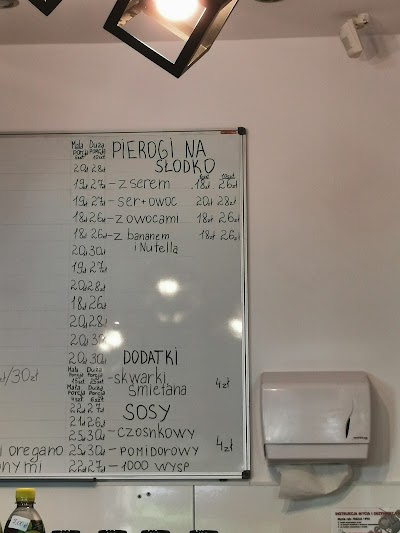 Mała Duża PIEROGI NA
PORCJA PORCJA SŁODKO
20zł 28zł
19zł 27zł – z serem 18zł 26zł
19zł 27zł – ser+owoc 20zł 28zł
18zł 26zł – z owocami 18zł 26zł
18zł 26zł – z bananem 18zł 26zł
20zł 30zł i Nutella
19zł 27zł
20zł 28zł
18zł 26zł
20zł 28zł
20zł
zł/30zł 20zł 30zł DODATKI
Mała Duża
PORCJA PORCJA – skwarki 4zł
Mała Duża śmietana
PORCJA PORCJA
22zł 27zł SOSY
21zł 26zł
25zł 30zł – czosnkowy 4zł
i oregano 25zł 30zł – pomidorowy
onymi 22zł 27zł – 1000 WYSP